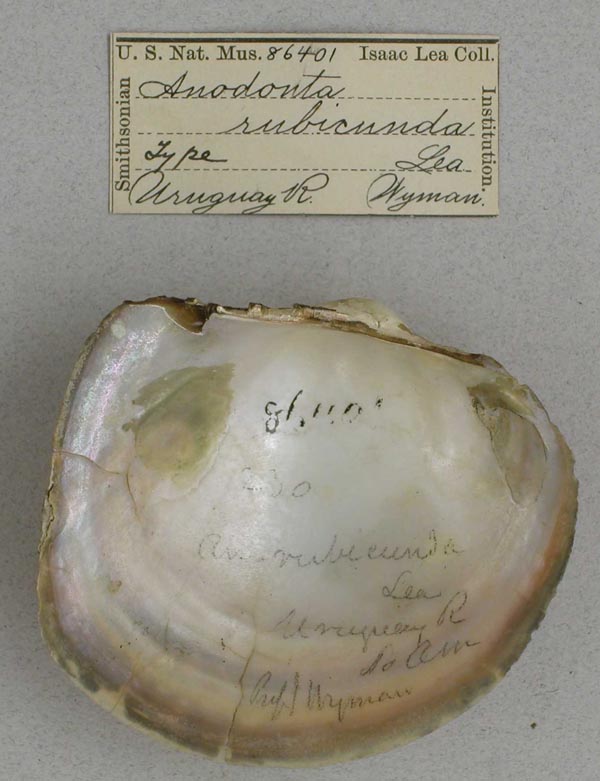 U. S. Nat. Mus. 86401 Isaac Lea Coll.
Smithsonian
Institution.
Anodonta
rubicunda
Type Lea
Uruguay R. Wyman.
86,401
230
An. rubicunda
Lea
Uruguay R
So Am
Prof Wyman